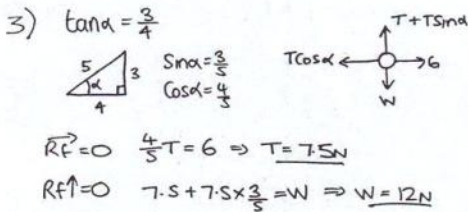 3) tanα = 3/4
5 3 α 4
Sinα = 3/5
Cosα = 4/5
T+TSinα
TCosα 6
W
Rf→=0 4/5T = 6 ⇒ T = 7.5N
Rf↑=0 7.5+7.5×3/5 = W ⇒ W = 12N